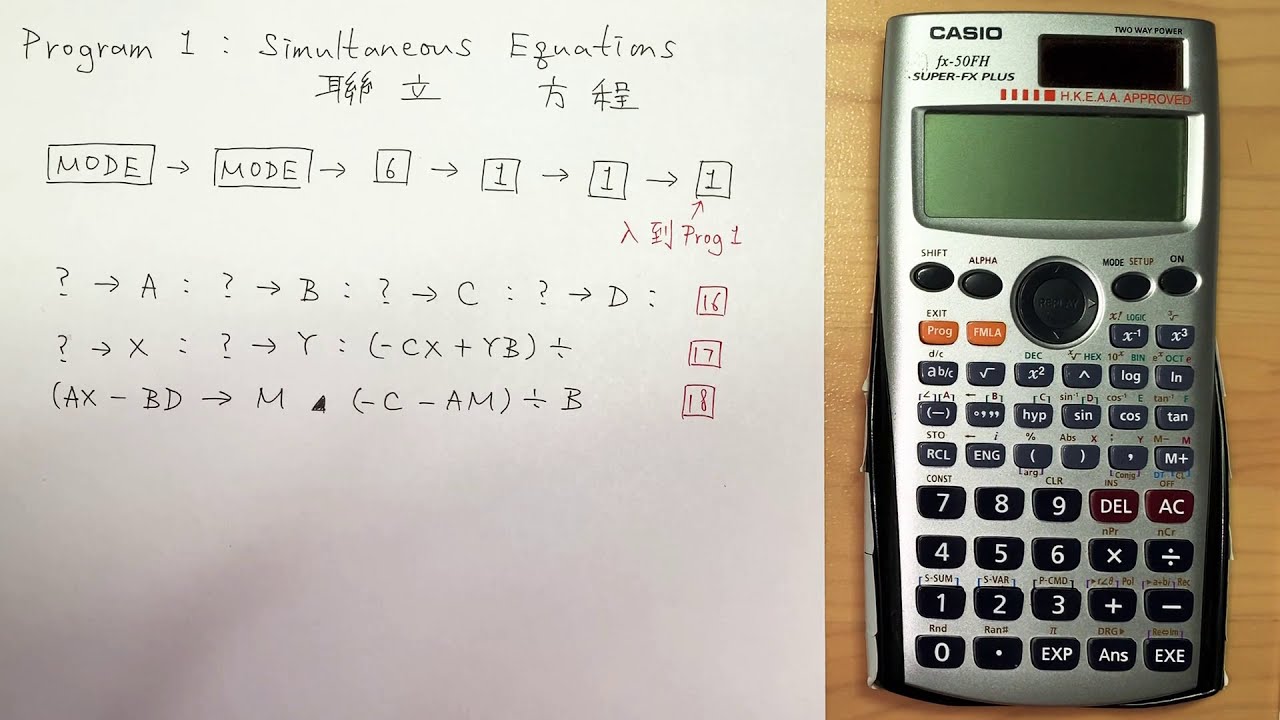 Program 1 : Simultaneous Equations
聯立 方程
MODE → MODE → 6 → 1 → 1 → 1
入到 Prog 1
? → A : ? → B : ? → C : ? → D : 16
? → X : ? → Y : (-CX + YB) ÷ 17
(AX - BD → M ◢ (-C - AM) ÷ B 18
CASIO
TWO WAY POWER
fx-50FH
SUPER-FX PLUS
H.K.E.A.A. APPROVED
SHIFT ALPHA REPLAY MODE SETUP ON
EXIT x! LOGIC ³√
Prog FMLA x⁻¹ x³
d/c DEC ˣ√ HEX 10ˣ BIN eˣ OCT e
ab/c √ x² ^ log ln
∠ A ← B C sin⁻¹ D cos⁻¹ E tan⁻¹ F
(−) °,,, hyp sin cos tan
STO ← i % Abs X ; Y M− M
RCL ENG ( ) , M+
arg Conjg DT CL
CONST CLR INS OFF
7 8 9 DEL AC
nPr nCr
4 5 6 × ÷
S-SUM S-VAR P-CMD ▸r∠θ Pol ▸a+bi Rec
1 2 3 + −
Rnd Ran# π DRG▸ Re⇔Im
0 · EXP Ans EXE